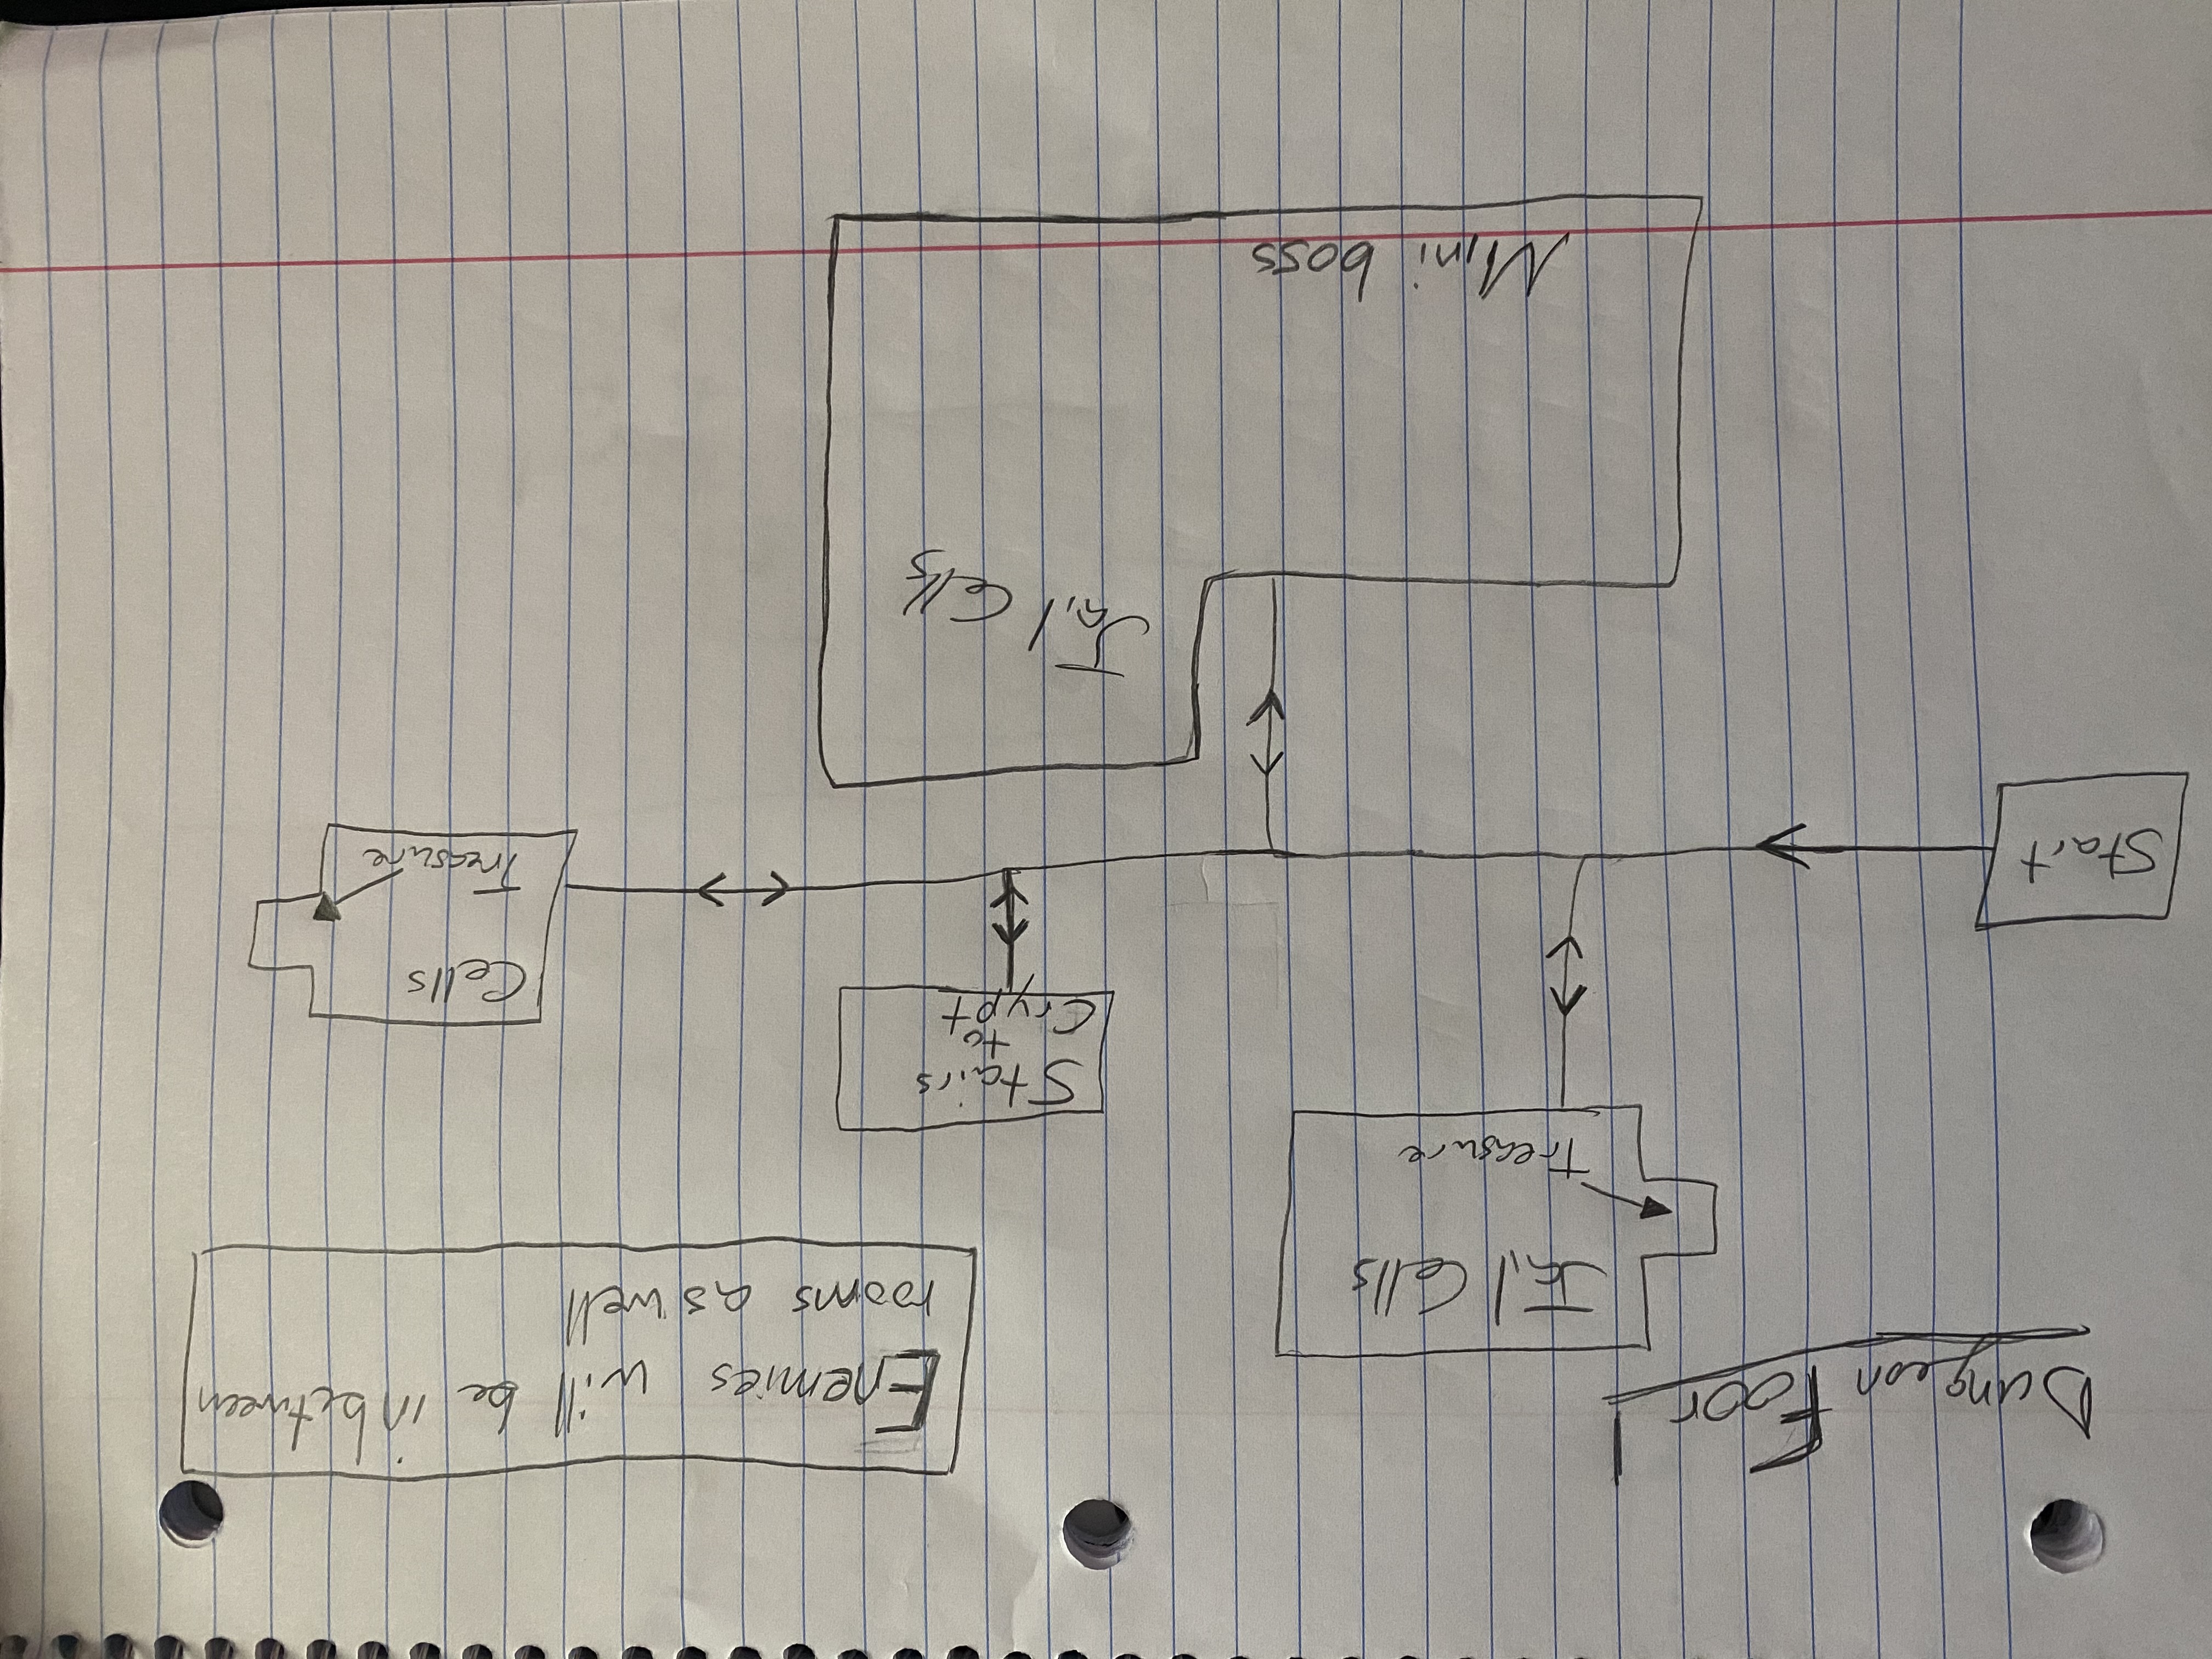 Dungeon Foor 1
Enemies will be inbetween
rooms as well
Jail Cells
Treasure
Stairs
to
Crypt
Cells
Treasure
Start
Jail Cells
Mini boss